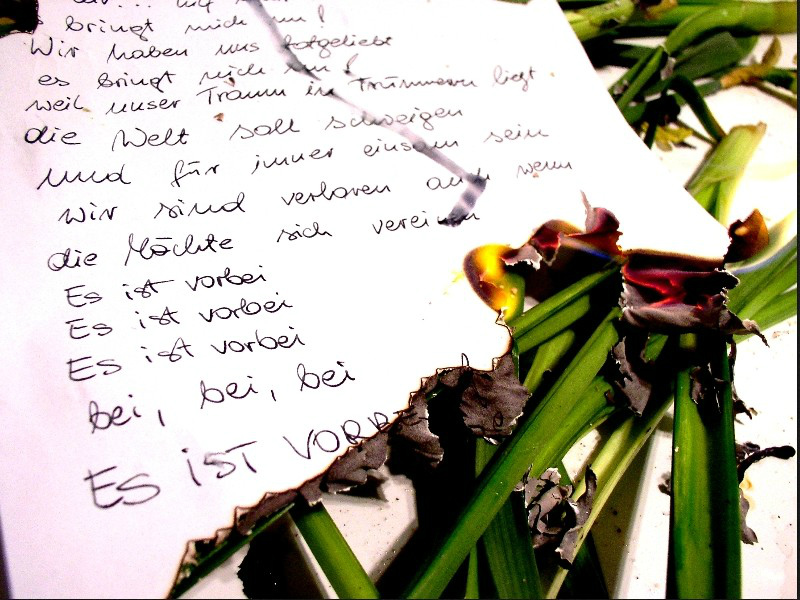 bringt mich um!
Wir haben uns totgeliebt
es bringt mich um!
weil unser Traum in Trümmern liegt
die Welt soll schweigen
und für immer einsam sein
wir sind verloren auch wenn
die Mächte sich vereinen
Es ist vorbei
Es ist vorbei
Es ist vorbei
bei, bei, bei
ES iST VORB